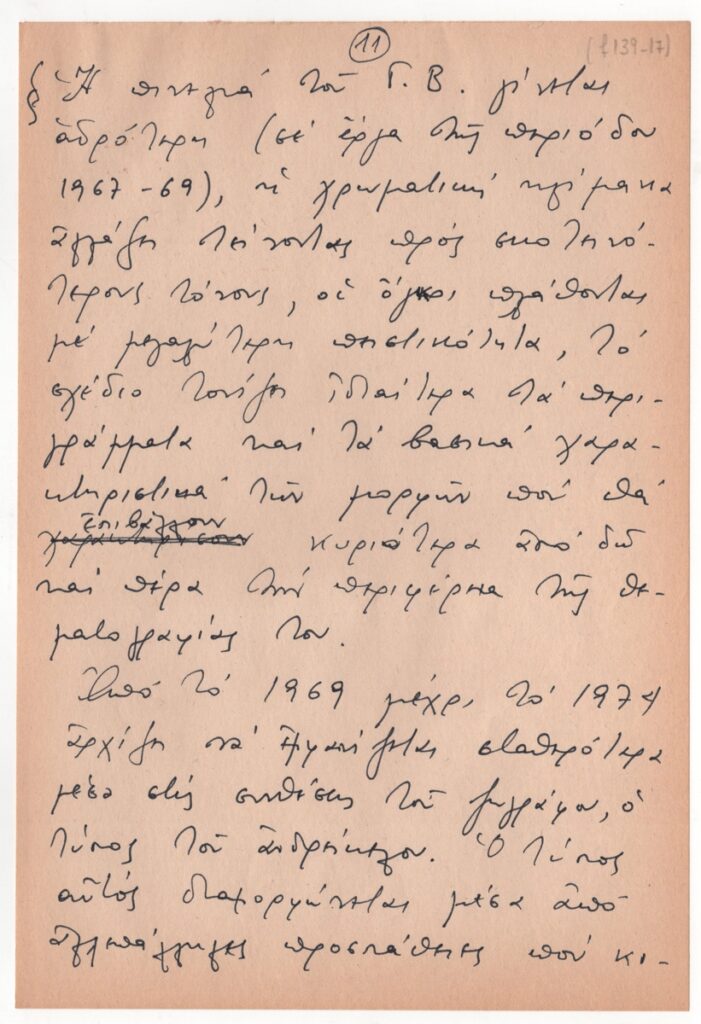 11
(f 139-17)
Ἡ πινελιά τοῦ Γ. Β. γίνεται
ἁδρότερη (σέ ἔργα τῆς περιόδου
1967-69), ἡ χρωματική κλίμακα
ἀλλάζει τείνοντας πρός σκοτεινό-
τερους τόνους, οἱ ὄγκοι πλάθονται
μέ μεγαλύτερη πειστικότητα, τό
σχέδιο τονίζει ἰδιαίτερα τά περι-
γράμματα καί τά βασικά χαρα-
κτηριστικά τῶν μορφῶν πού θά
ἐπιβάλλουν
κυριότερα ἀπό δῶ
καί πέρα τήν περιφέρεια τῆς θε-
ματογραφίας του.
Ἀπό τό 1969 μέχρι τό 1974
ἀρχίζει νά ἐμφανίζεται σταθερότερα
μέσα στίς συνθέσεις τοῦ ζωγράφου, ὁ
τύπος τοῦ ἀνδρείκελου. Ὁ τύπος
αὐτός διαμορφώνεται μέσα ἀπό
ἀλλεπάλληλες προσπάθειες πού κι-